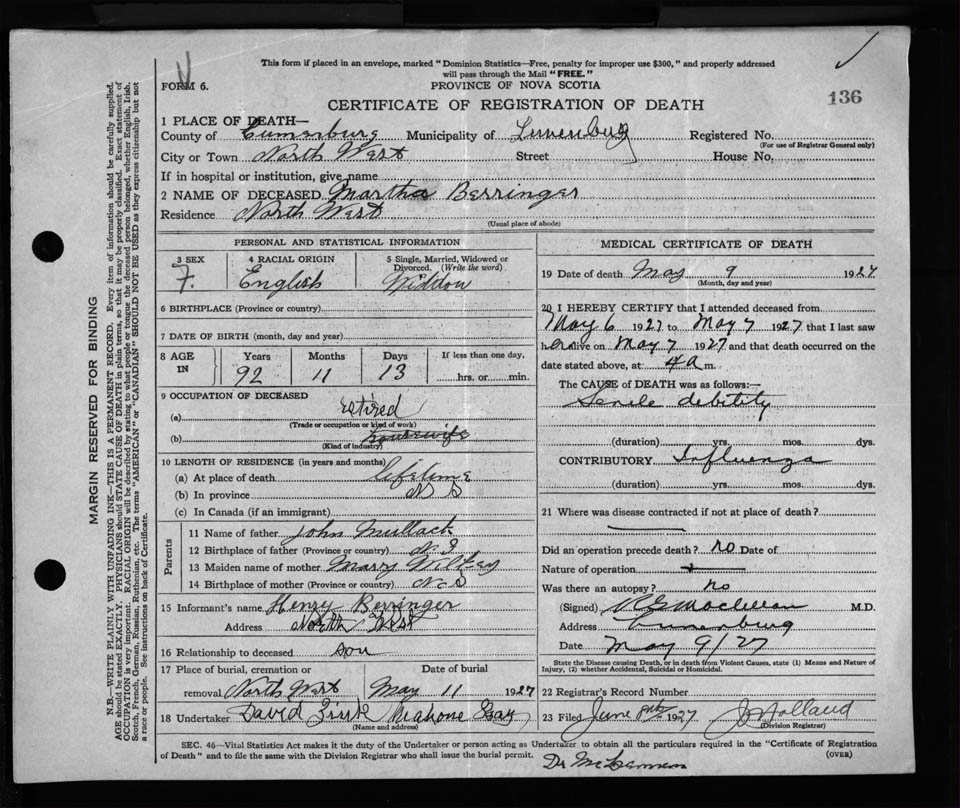 This form if placed in an envelope, marked "Dominion Statistics—Free, penalty for improper use $300," and properly addressed
will pass through the Mail "FREE."
FORM 6.
PROVINCE OF NOVA SCOTIA
136
CERTIFICATE OF REGISTRATION OF DEATH
1 PLACE OF DEATH—
County of Lunenburg Municipality of Lunenburg Registered No.
(For use of Registrar General only)
City or Town North West Street House No.
If in hospital or institution, give name
2 NAME OF DECEASED Martha Berringer
Residence North West
(Usual place of abode)
PERSONAL AND STATISTICAL INFORMATION
3 SEX 4 RACIAL ORIGIN 5 Single, Married, Widowed or
Divorced. (Write the word)
F. English Widdow
6 BIRTHPLACE (Province or country)
7 DATE OF BIRTH (month, day and year)
8 AGE IN Years Months Days If less than one day,
92 11 13 hrs. or min.
9 OCCUPATION OF DECEASED
(a) retired
(Trade or occupation or kind of work)
(b) housewife
(Kind of industry)
10 LENGTH OF RESIDENCE (in years and months)
(a) At place of death lifetime
(b) In province N S
(c) In Canada (if an immigrant)
Parents
11 Name of father John Mullack
12 Birthplace of father (Province or country) N.S
13 Maiden name of mother Mary
14 Birthplace of mother (Province or country) N.S
15 Informant's name Henry Berringer
Address North West
16 Relationship to deceased son
17 Place of burial, cremation or Date of burial
removal North West May 11 1927
18 Undertaker David Mahone Bay
(Name and address)
MEDICAL CERTIFICATE OF DEATH
19 Date of death May 9 1927
(Month, day and year)
20 I HEREBY CERTIFY that I attended deceased from
May 6 1927 to May 7 1927 that I last saw
her alive on May 7 1927 and that death occurred on
date stated above, at 4 a m.
The CAUSE of DEATH was as follows:—
Senile debility
(duration) yrs. mos. dys.
CONTRIBUTORY Influenza
(duration) yrs. mos. dys.
21 Where was disease contracted if not at place of death?
Did an operation precede death? no Date of
Nature of operation
Was there an autopsy? no
(Signed) M.D.
Address Lunenburg
Date May 9/27
State the Disease causing Death, or in death from Violent Causes, state (1) Means and Nature of
Injury, (2) whether Accidental, Suicidal or Homicidal.
22 Registrar's Record Number
23 Filed June 1927 Holland
(Division Registrar)
SEC. 46—Vital Statistics Act makes it the duty of the Undertaker or person acting as Undertaker to obtain all the particulars required in the "Certificate of Registration
of Death" and to file the same with the Division Registrar who shall issue the burial permit.
(OVER)
Dr
MARGIN RESERVED FOR BINDING
N.B.—WRITE PLAINLY WITH UNFADING INK—THIS IS A PERMANENT RECORD. Every item of information should be carefully supplied.
AGE should be stated EXACTLY. PHYSICIANS should STATE CAUSE OF DEATH in plain terms, so that it may be properly classified. Exact statement of
OCCUPATION is very important. RACIAL ORIGIN will be described by stating to what people or tongue the deceased person belonged, whether English, Irish,
Scotch, French, German, Russian, Ruthenian, etc. The terms "AMERICAN" or "CANADIAN" SHOULD NOT BE USED as they express citizenship but not
a race or people. See instructions on back of Certificate.